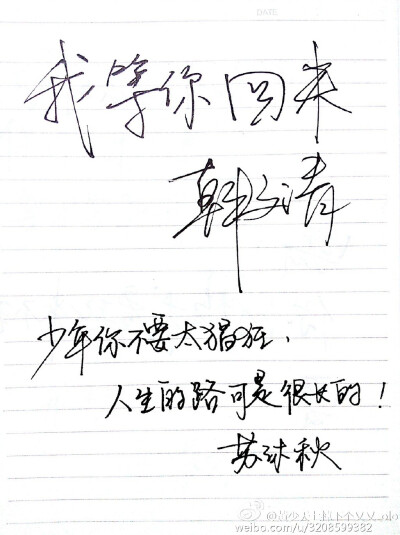 DATE
我等你回来
韩文清
少年你不要太猖狂、
人生的路可是很长的！
苏沐秋
weibo.com/u/3208599382